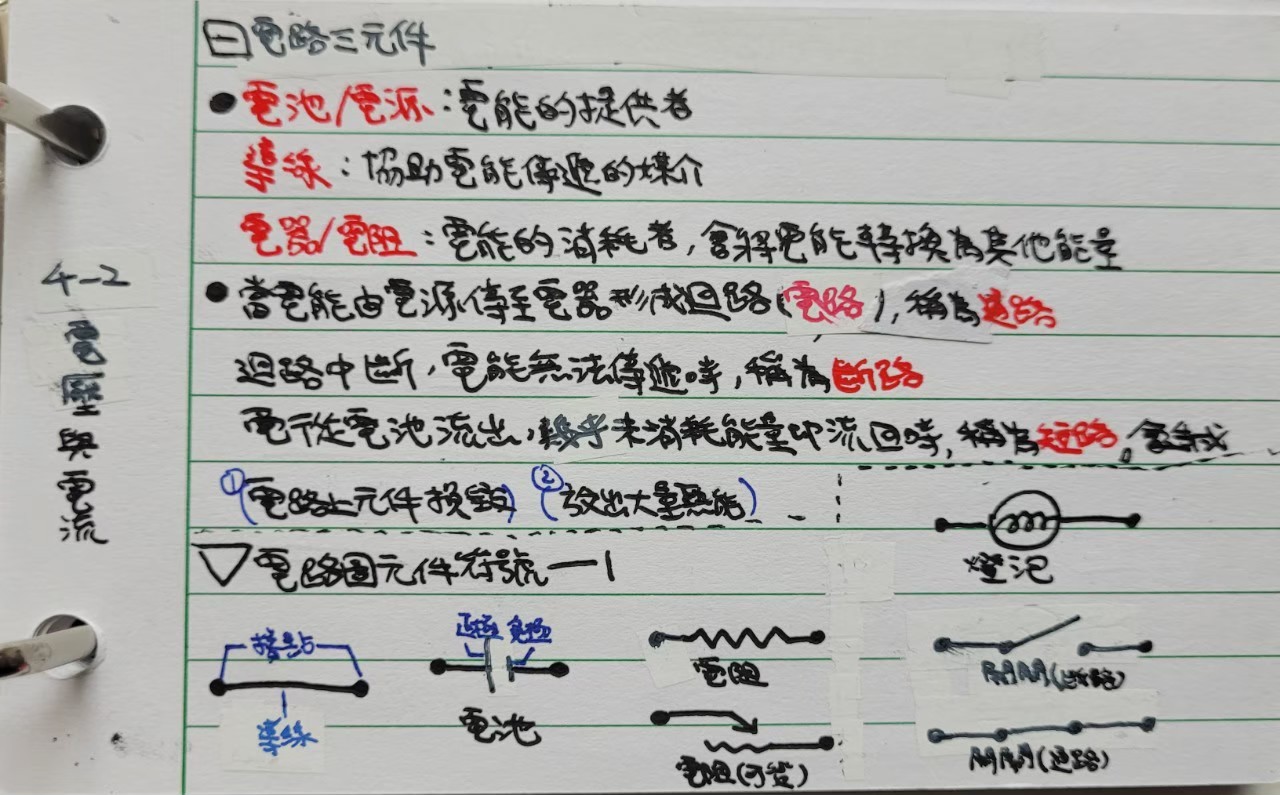 4-2 電壓與電流
㊀電路三元件
●電池/電源:電能的提供者
導線:協助電能傳遞的媒介
電器/電阻:電能的消耗者,會將電能轉換為其他能量
●當電能由電源傳至電器形成迴路(電路),稱為通路
迴路中斷,電能無法傳遞時,稱為斷路
電從電池流出,幾乎未消耗能量即流回時,稱為短路。會造成
①(電路上元件損毀) ②(放出大量熱能)
▽電路圖元件符號—1
燈泡
接點
導線
正極 負極
電池
電阻
電阻(可變)
開關(斷路)
開關(通路)